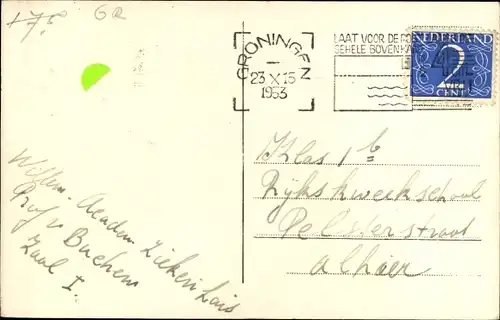 +75 6R
GRONINGEN
23 X 15
1953
LAAT VOOR DE PO
GEHELE BOVENKA
NEDERLAND
2
CENT
Klas 1 b
Rijkskweekschool
Pelsterstraat
alhier
Willem
Academ Ziekenhuis
Prof v Buchem
Zaal I.